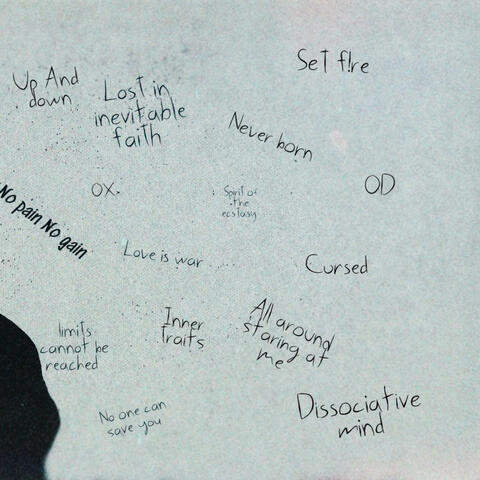 Set f!re
Up And
down
Lost in
inevitable
faith
Never born
OX.
Spirit of
the
ecstasy
OD
No pain No gain
Love is war
Cursed
Inner
Traits
All around
staring at
me
limits
cannot be
reached
No one can
save you
Dissociative
mind